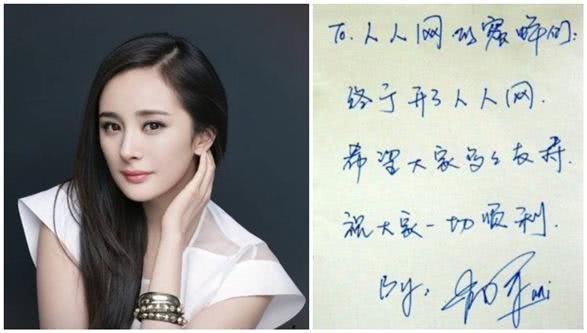 To. 人人网的蜜蜂们:
终于开了人人网.
希望大家多多支持.
祝大家一切顺利.
By, mi